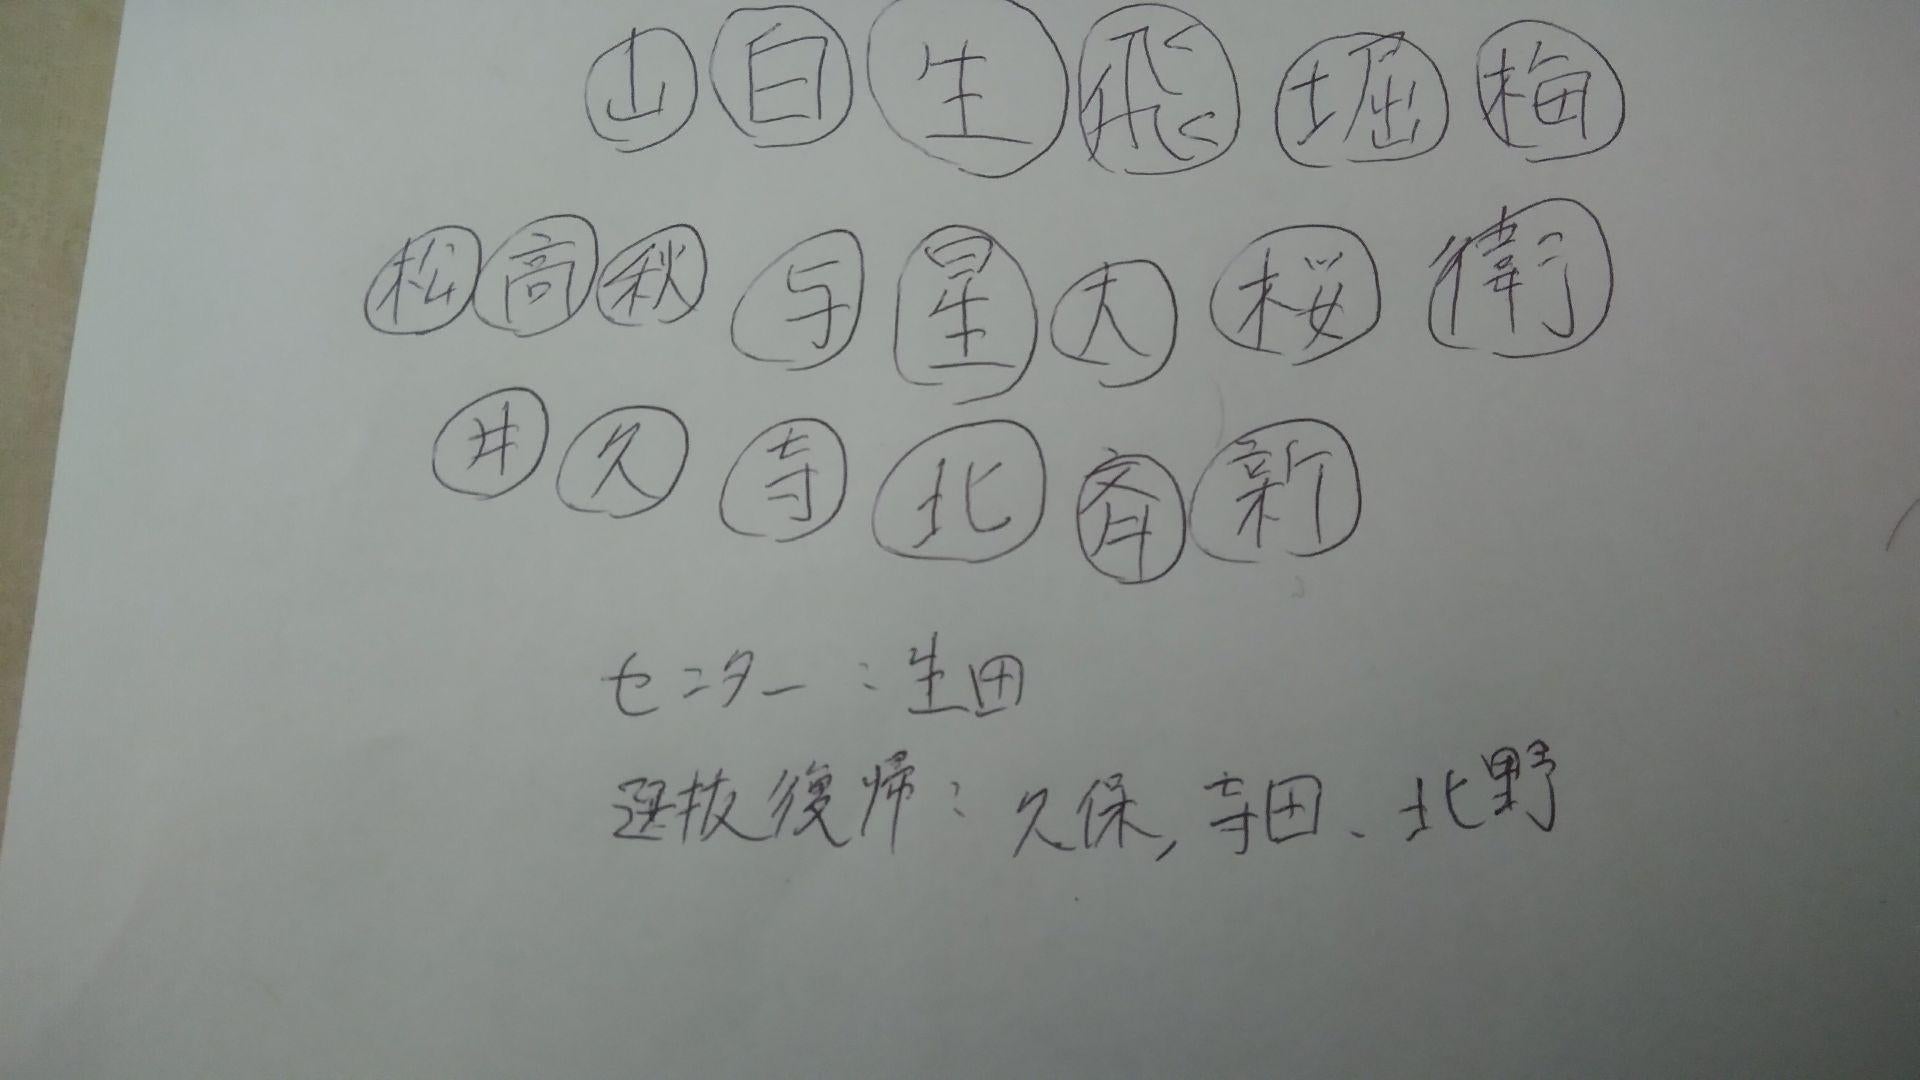 山 白 生 飛 堀 梅
松 高 秋 与 星 大 桜 衛
井 久 寺 北 斉 新
センター：生田
選抜復帰：久保, 寺田、北野